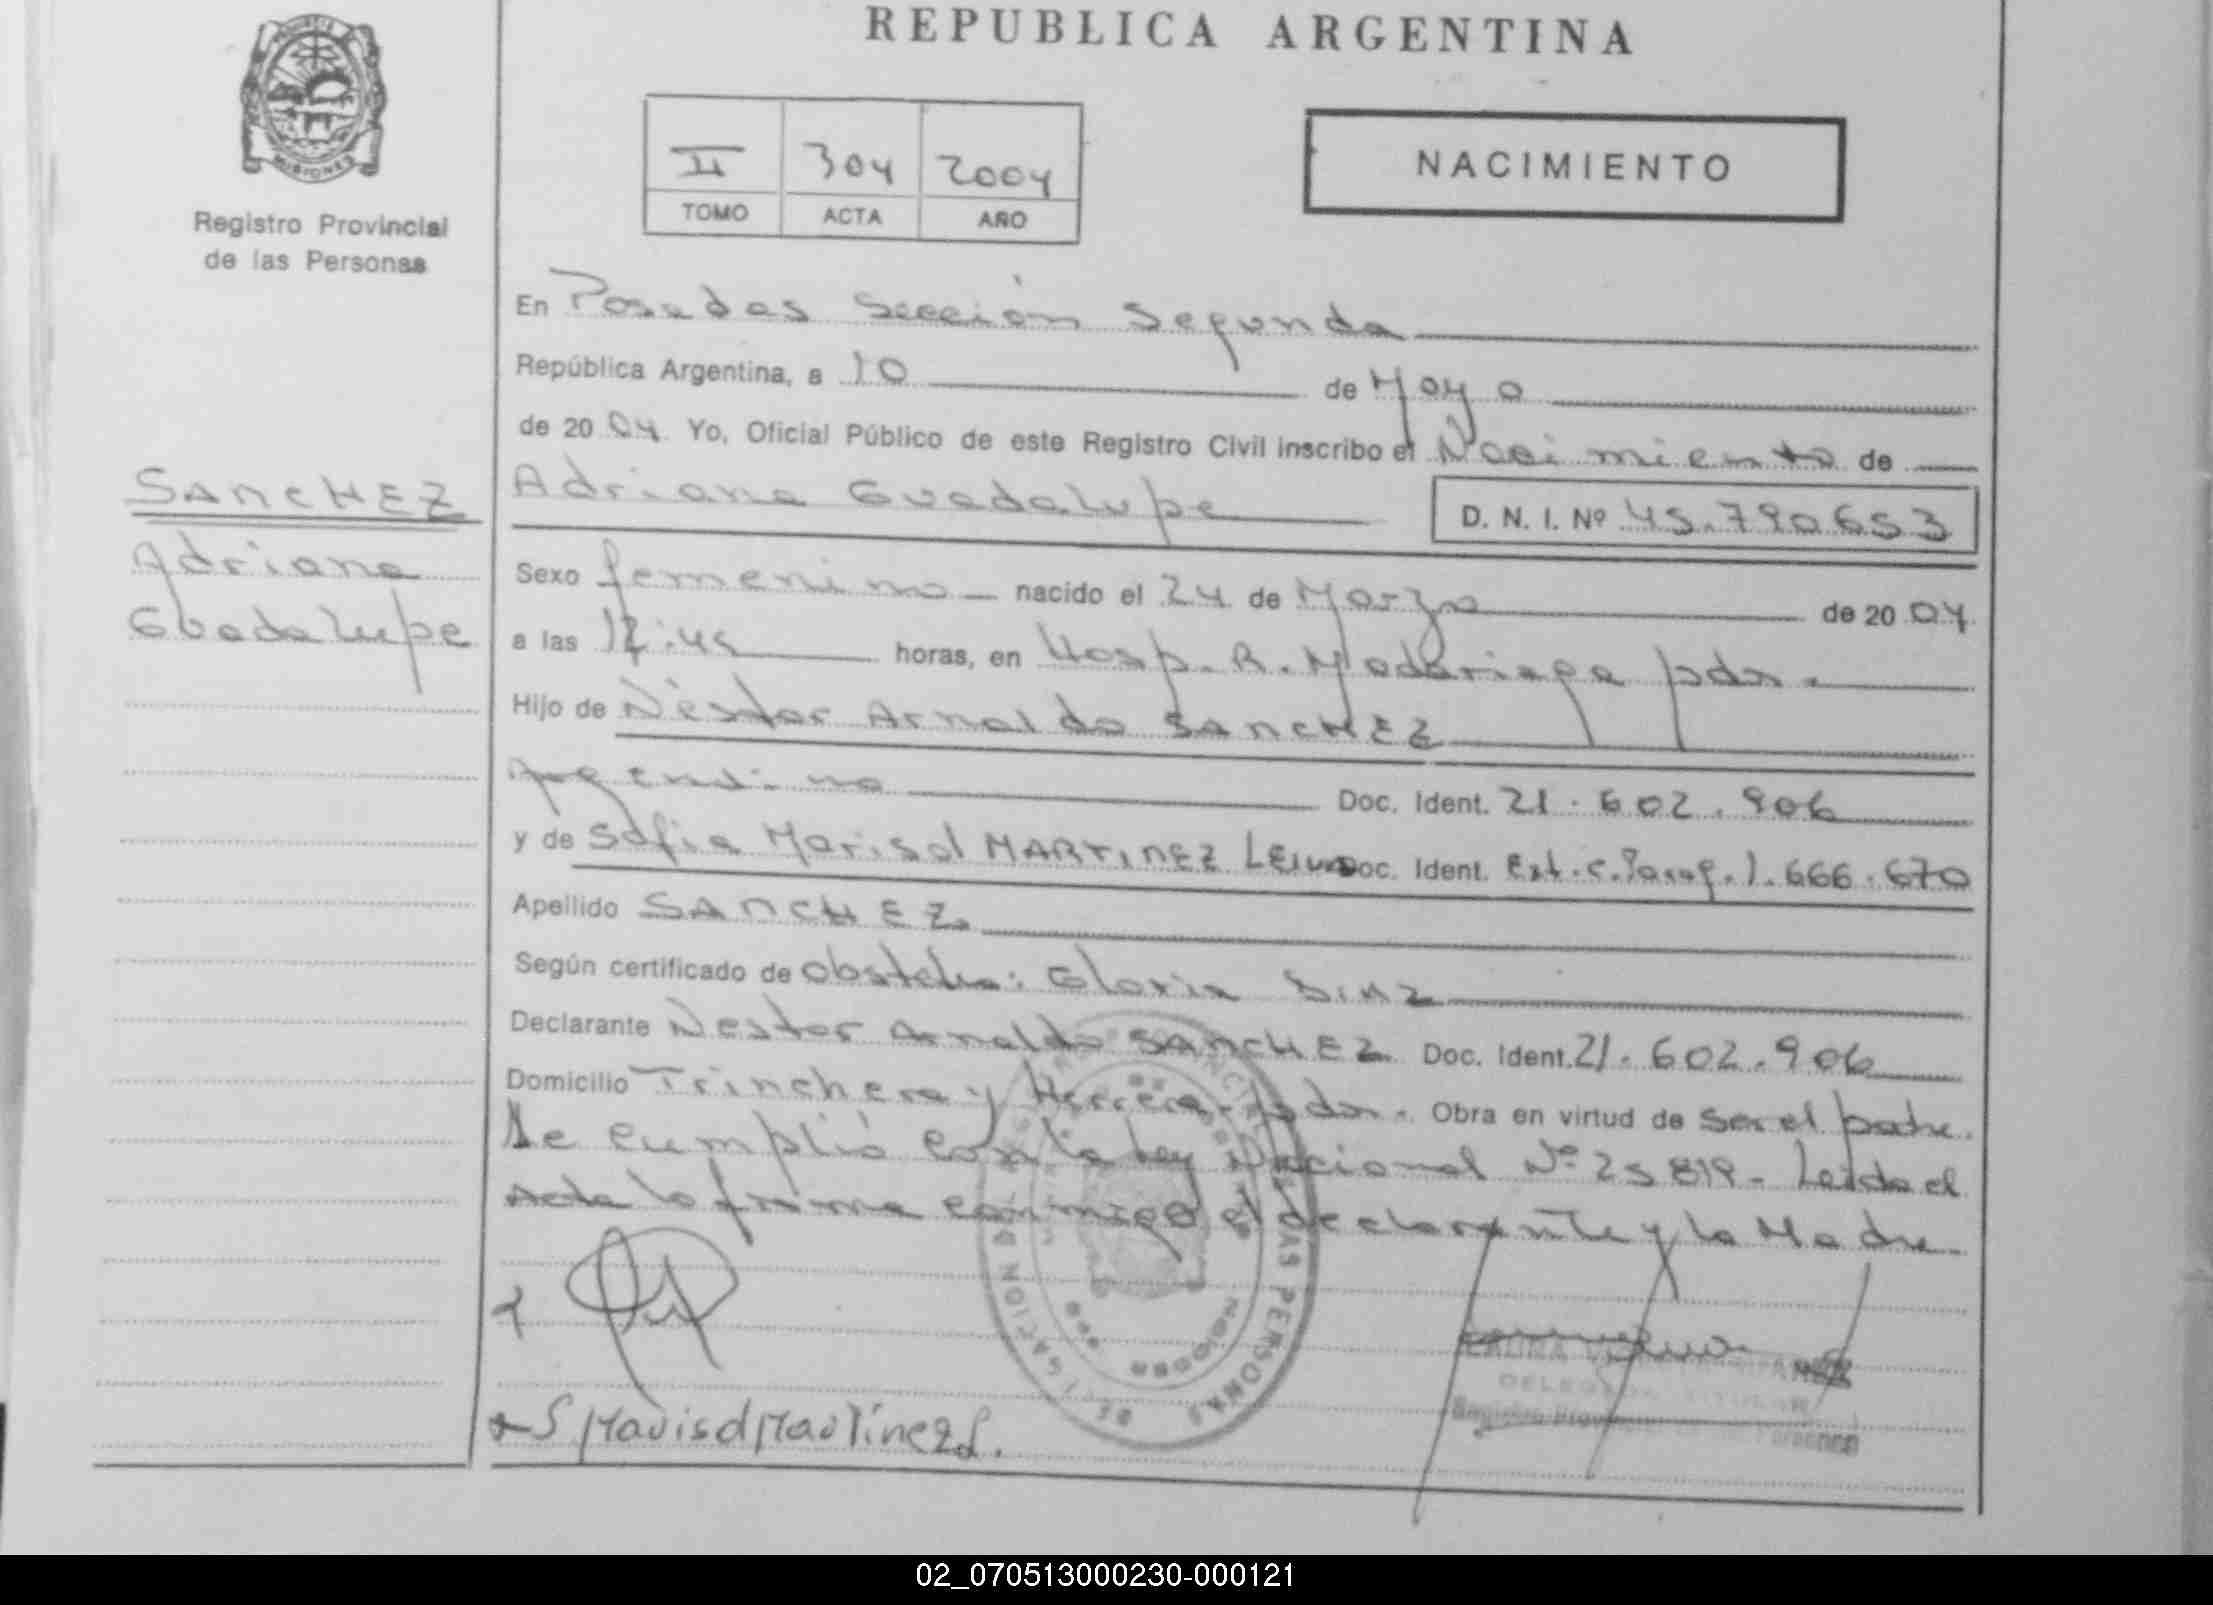 REPUBLICA ARGENTINA
MISIONES
Registro Provincial
de las Personas
II 304 2004
TOMO ACTA AÑO
NACIMIENTO
SANCHEZ
Adriana
Guadalupe
En Posadas Sección Segunda
República Argentina, a 10 de Mayo
de 20 04 Yo, Oficial Público de este Registro Civil inscribo el Nacimiento de
Adriana Guadalupe D. N. I. Nº 45.790653
Sexo femenino nacido el 24 de Marzo de 20 04
a las :45 horas, en Hosp. R. Madariaga pdas.
Hijo de Néstor Arnaldo SANCHEZ
Argentino Doc. Ident. 21.602.906
y de Sofia Marisol MARTINEZ LEIVA Doc. Ident. Ext. c. Parag. 1.666.670
Apellido SANCHEZ
Según certificado de Obstetra: Gloria DIAZ
Declarante Nestor Arnaldo SANCHEZ Doc. Ident. 21.602.906
Domicilio Trinchera y Herrera - pdas. Obra en virtud de ser el padre.
Se cumplió con la Ley Nacional Nº 25819 - Leida el
Acta lo firma conmigo el declarante y la Madre
S Marisol Martínez L.
DELEGADA TITULAR
Registro Provincial de las Personas
02_070513000230-000121